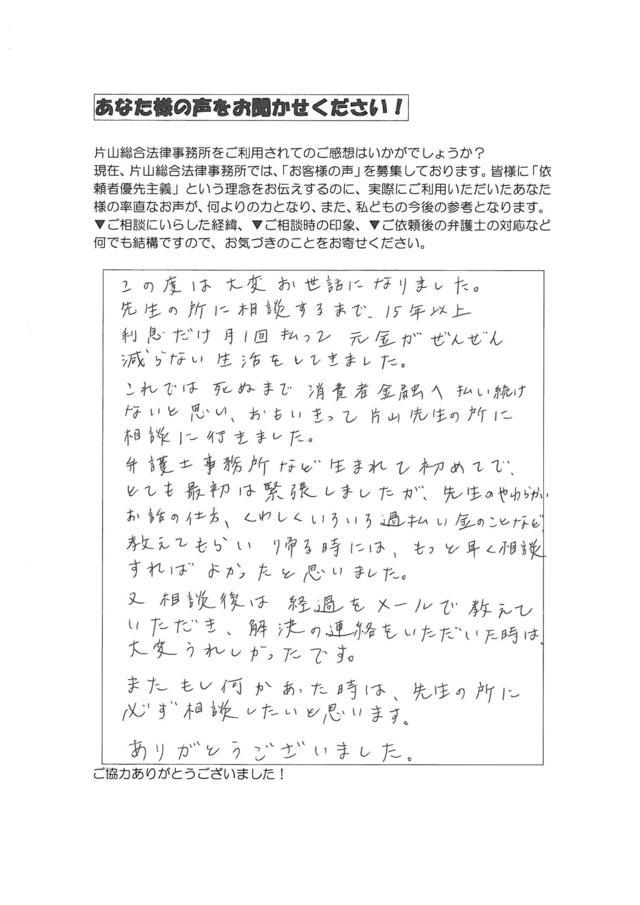 あなた様の声をお聞かせください！
片山総合法律事務所をご利用されてのご感想はいかがでしょうか？
現在、片山総合法律事務所では、「お客様の声」を募集しております。皆様に「依
頼者優先主義」という理念をお伝えするのに、実際にご利用いただいたあなた
様の率直なお声が、何よりの力となり、また、私どもの今後の参考となります。
▼ご相談にいらした経緯、▼ご相談時の印象、▼ご依頼後の弁護士の対応など
何でも結構ですので、お気づきのことをお寄せください。
この度は大変お世話になりました。
先生の所に相談するまで、15年以上
利息だけ月1回払って元金がぜんぜん
減らない生活をしてきました。
これでは死ぬまで消費者金融へ払い続け
ないと思い、おもいきって片山先生の所に
相談に行きました。
弁護士事務所など生まれて初めてで、
とても最初は緊張しましたが、先生のやわらかい
お話の仕方、くわしくいろいろ過払い金のことなど
教えてもらい帰る時には、もっと早く相談
すればよかったと思いました。
又相談後は経過をメールで教えて
いただき、解決の連絡をいただいた時は、
大変うれしかったです。
またもし何かあった時は、先生の所に
必ず相談したいと思います。
ありがとうございました。
ご協力ありがとうございました！